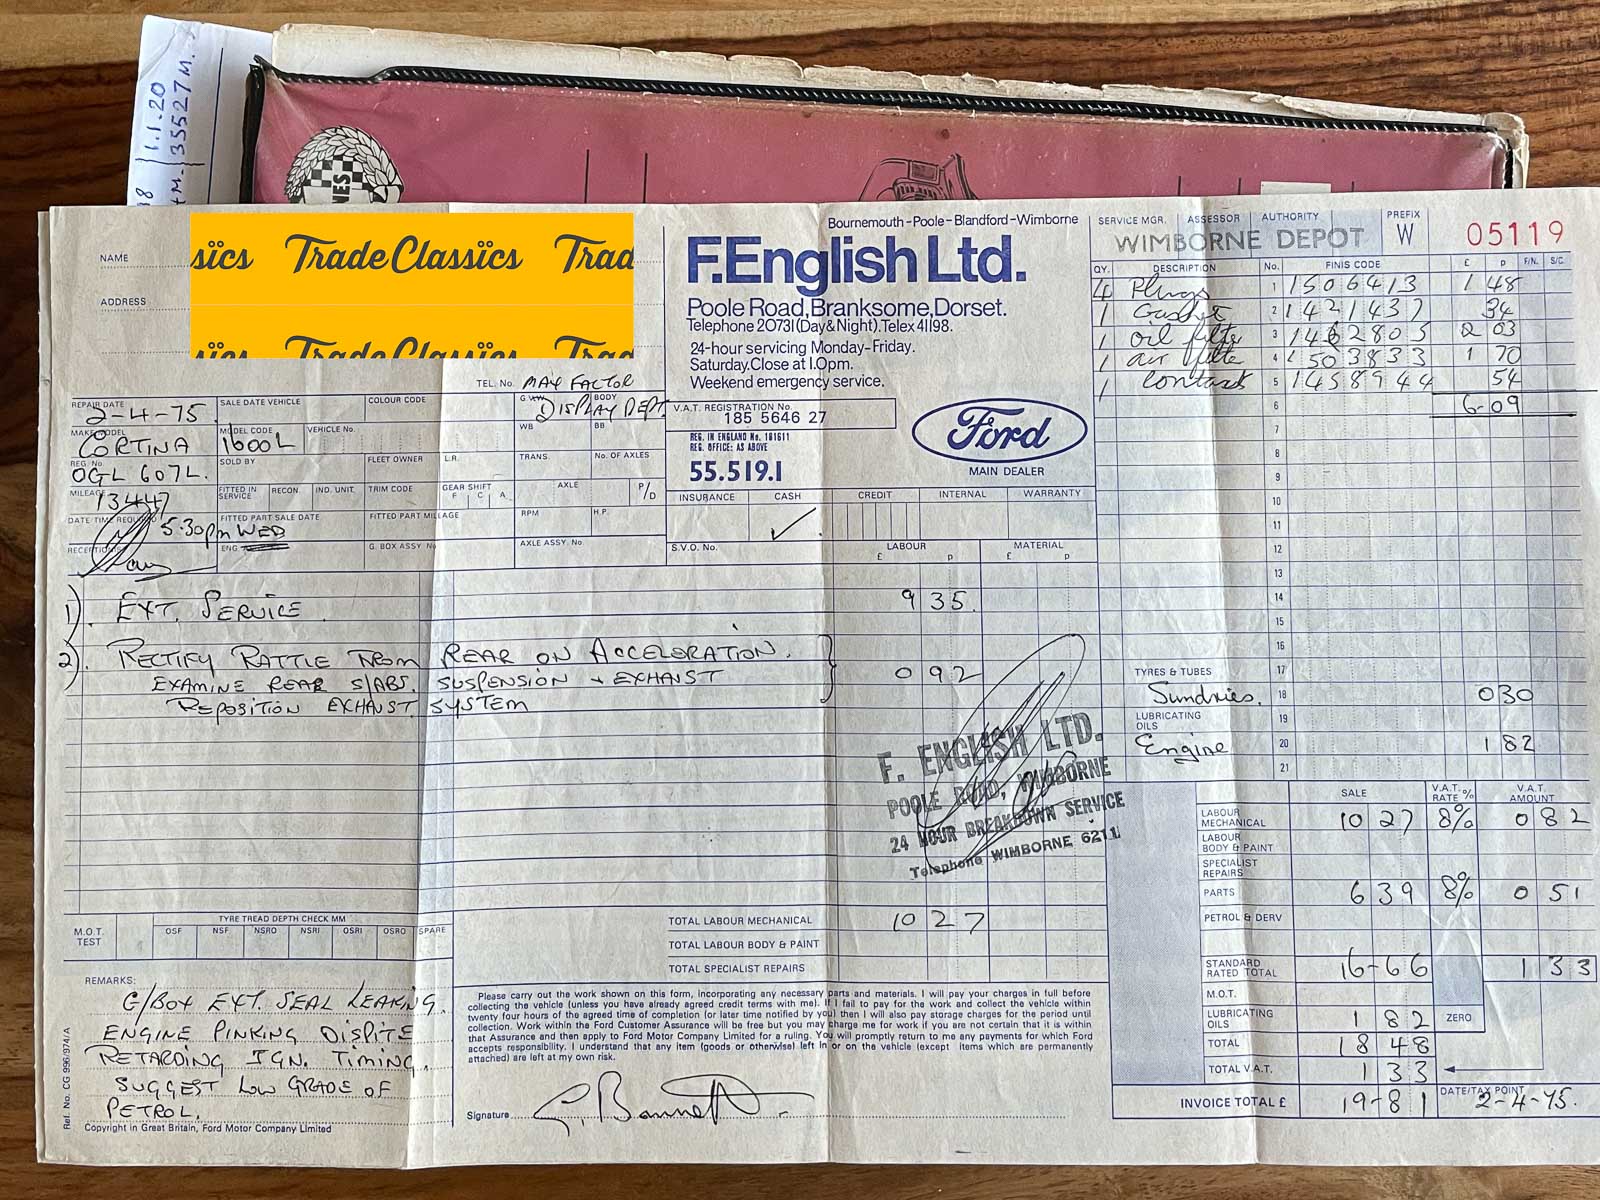 1.1.20
35527M.
NES
NAME
ADDRESS
siics TradeClassiics Trad
siics TradeClassiics Trad
TEL. No. MAX FACTOR
DISPLAY DEPT.
Bournemouth-Poole-Blandford-Wimborne
F.English Ltd.
Poole Road, Branksome, Dorset.
Telephone 20731(Day&Night). Telex 41198.
24-hour servicing Monday-Friday.
Saturday. Close at 1.0pm.
Weekend emergency service.
V.A.T. REGISTRATION No.
185 5646 27
REG. IN ENGLAND No. 181611
REG. OFFICE: AS ABOVE
55.519.1
Ford
MAIN DEALER
SERVICE MGR. ASSESSOR AUTHORITY PREFIX
WIMBORNE DEPOT W 05119
QY. DESCRIPTION No. FINIS CODE £ p F/N. S/C
4 Plugs 1 1506413 1 48
1 Gasket 2 1421437 34
1 oil filte 3 1462805 2 03
1 air filte 4 1503833 1 70
1 Contact 5 1458944 54
6 6-09
7
8
9
10
11
12
13
14
15
16
TYRES & TUBES 17
Sundries. 18 0 30
LUBRICATING OILS 19
Engine 20 1 82
21
REPAIR DATE 2-4-75 SALE DATE VEHICLE COLOUR CODE G.V.W. BODY
MAKE/MODEL CORTINA MODEL CODE 1600L VEHICLE No. WB BB
REG. No. OGL 607L. SOLD BY FLEET OWNER L.R. TRANS. No. OF AXLES
MILEAGE 13447 FITTED IN SERVICE RECON. IND. UNIT. TRIM CODE GEAR SHIFT F C A AXLE P/D
DATE/TIME REQUIRED 5.30pm WED FITTED PART SALE DATE FITTED PART MILEAGE RPM H.P.
RECEPTION ENG. G. BOX ASSY. No AXLE ASSY. No.
INSURANCE CASH CREDIT INTERNAL WARRANTY
S.V.O. No. LABOUR MATERIAL
£ p £ p
1). EXT. SERVICE. 9 35.
2). RECTIFY RATTLE FROM REAR ON ACCELORATION.
EXAMINE REAR S/ABS. SUSPENSION + EXHAUST 0 92
REPOSITION EXHAUST SYSTEM
F. ENGLISH LTD.
POOLE ROAD, WIMBORNE
24 HOUR BREAKDOWN SERVICE
Telephone WIMBORNE 6211
TOTAL LABOUR MECHANICAL 10 27
TOTAL LABOUR BODY & PAINT
TOTAL SPECIALIST REPAIRS
M.O.T. TEST
TYRE TREAD DEPTH CHECK MM
OSF NSF NSRO NSRI OSRI OSRO SPARE
REMARKS:
G/BOX EXT. SEAL LEAKING.
ENGINE PINKING DISPITE
RETARDING IGN. TIMING.
SUGGEST LOW GRADE OF
PETROL.
Copyright in Great Britain, Ford Motor Company Limited
Ref. No. CG 996/974/A
Please carry out the work shown on this form, incorporating any necessary parts and materials. I will pay your charges in full before
collecting the vehicle (unless you have already agreed credit terms with me). If I fail to pay for the work and collect the vehicle within
twenty four hours of the agreed time of completion (or later time notified by you) then I will also pay storage charges for the period until
collection. Work within the Ford Customer Assurance will be free but you may charge me for work if you are not certain that it is within
that Assurance and then apply to Ford Motor Company Limited for a ruling. You will promptly return to me any payments for which Ford
accepts responsibility. I understand that any item (goods or otherwise) left in or on the vehicle (except items which are permanently
attached) are left at my own risk.
Signature
SALE V.A.T. RATE % V.A.T. AMOUNT
LABOUR MECHANICAL 10 27 8% 0 82
LABOUR BODY & PAINT
SPECIALIST REPAIRS
PARTS 6 39 8% 0 51
PETROL & DERV
STANDARD RATED TOTAL 16-66 1 33
M.O.T.
LUBRICATING OILS 1 82 ZERO
TOTAL 18 48
TOTAL V.A.T. 1 33
INVOICE TOTAL £ 19-81 DATE/TAX POINT 2-4-75.